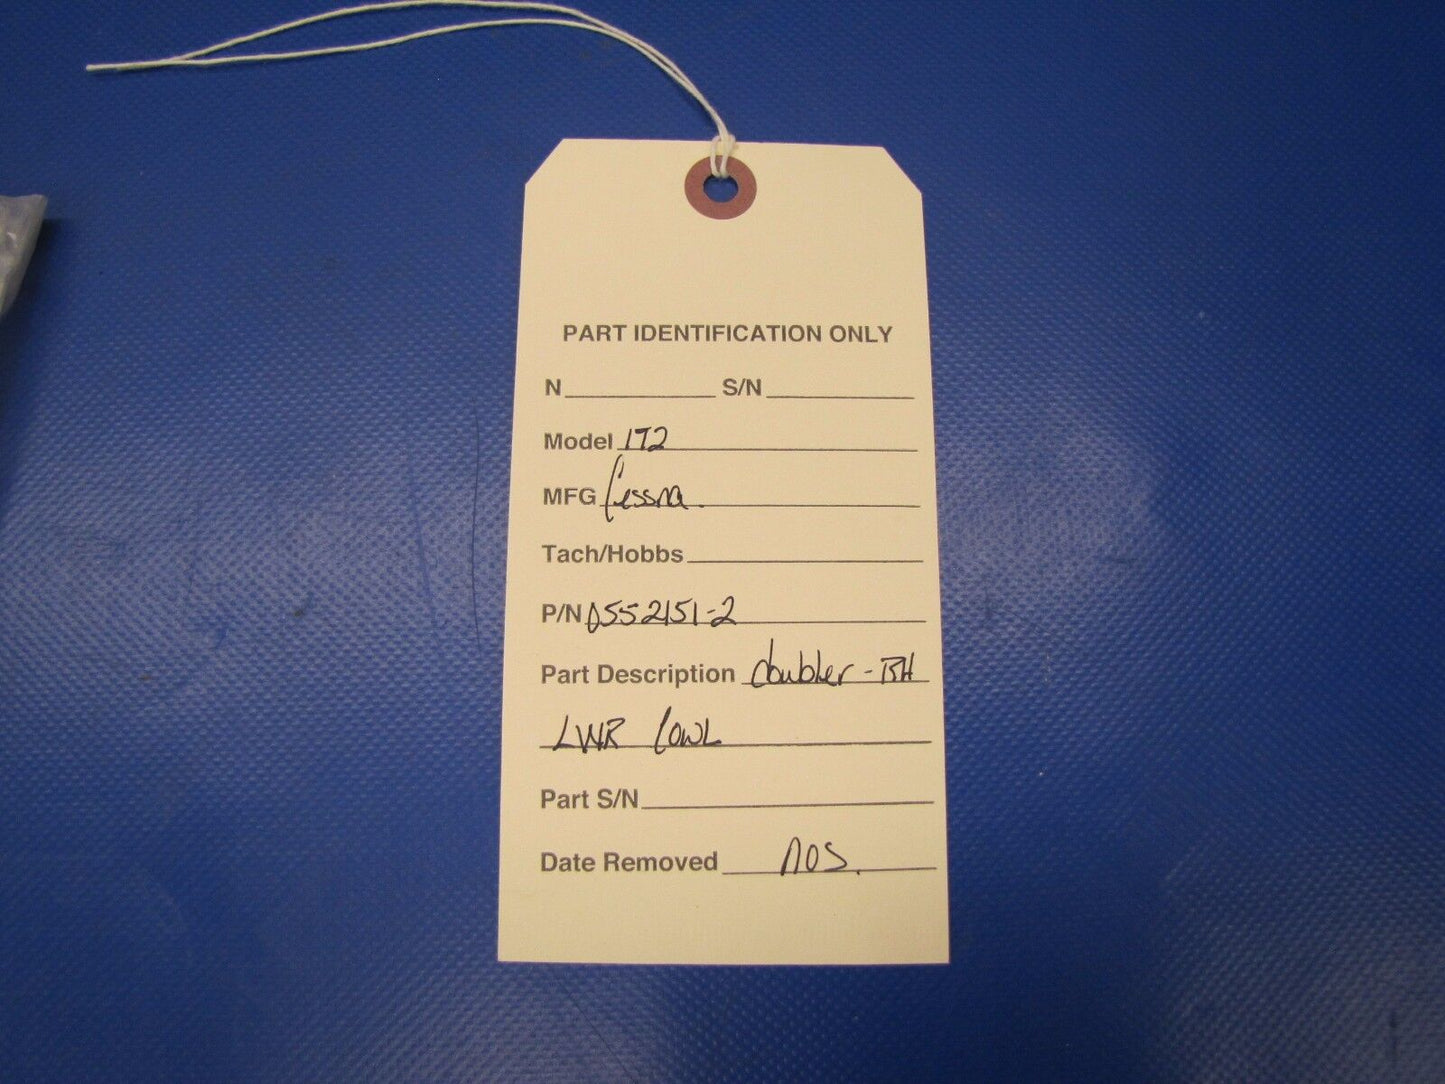 PART IDENTIFICATION ONLY
N S/N
Model 172
MFG Cessna.
Tach/Hobbs
P/N 0552151-2
Part Description doubler - RH
LWR Cowl
Part S/N
Date Removed NOS.